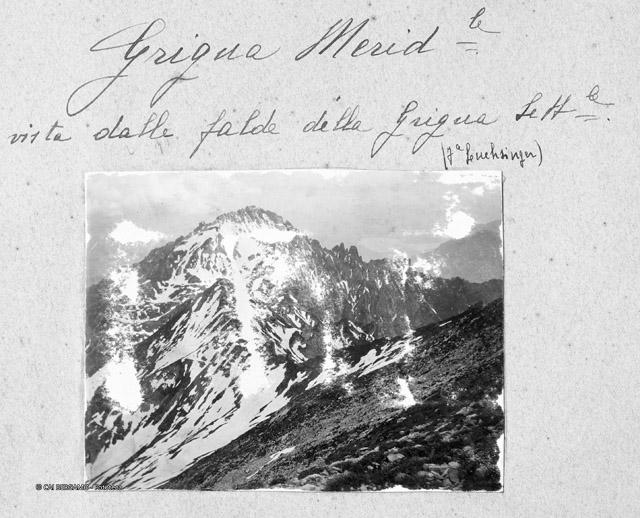 Grigna Merid le
vista dalle falde della Grigna Sett le.
© CAI BERGAMO